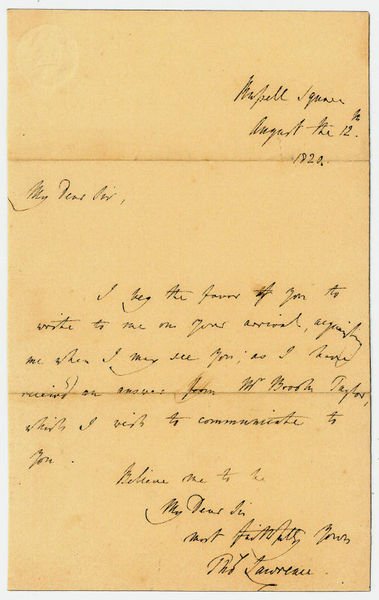 Russell Square
August the 12th.
1820.
My Dear Sir,
I beg the favor of you to
write to me on your arrival, acquainting
me when I may see You; as I have
receiv'd an answer from Mr Brook Taylor,
which I wish to communicate to
You.
Believe me to be
My Dear Sir
most faithfully Yours
Thos Lawrence